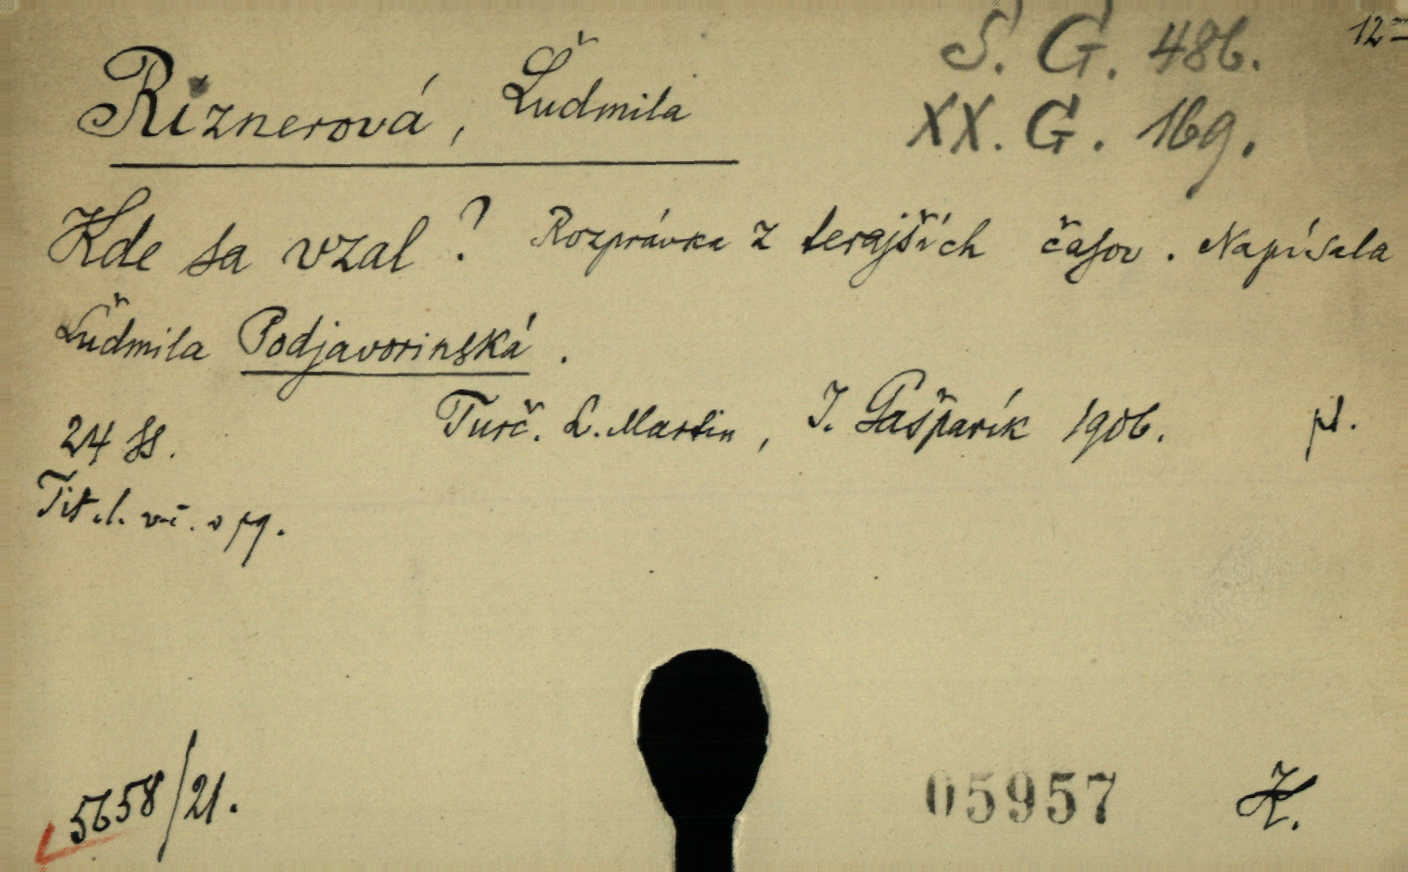 12º
S. G. 486.
XX. G. 169.
Riznerová, Ľudmila
Kde sa vzal? Rozprávka z terajších časov. Napísala
Ľudmila Podjavorinská.
Turč. S. Martin, I. Gašparík 1906. pl.
24 ss.
Tit. l.
5658/21.
05957
K.